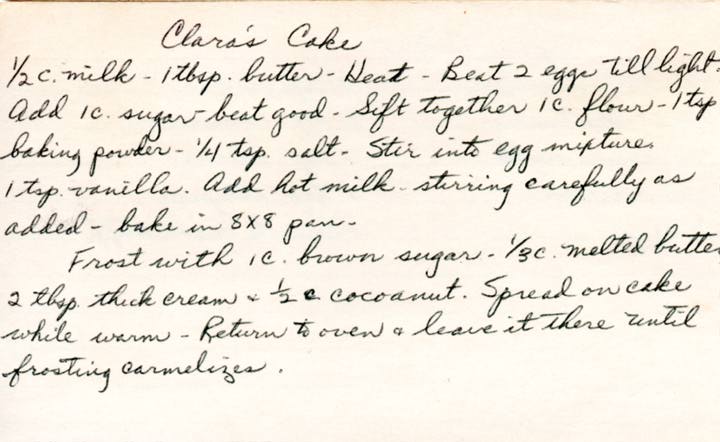 Clara's Cake
1/2 c. milk - 1 tbsp. butter - Heat - Beat 2 eggs till light.
Add 1 c. sugar - beat good - Sift together 1 c. flour - 1 tsp
baking powder - 1/4 tsp. salt - Stir into egg mixture.
1 tsp. vanilla. Add hot milk - stirring carefully as
added - bake in 8x8 pan -
Frost with 1 c. brown sugar - 1/3 c. melted butter
2 tbsp. thick cream & 1/2 c cocoanut. Spread on cake
while warm - Return to oven & leave it there until
frosting carmelizes.